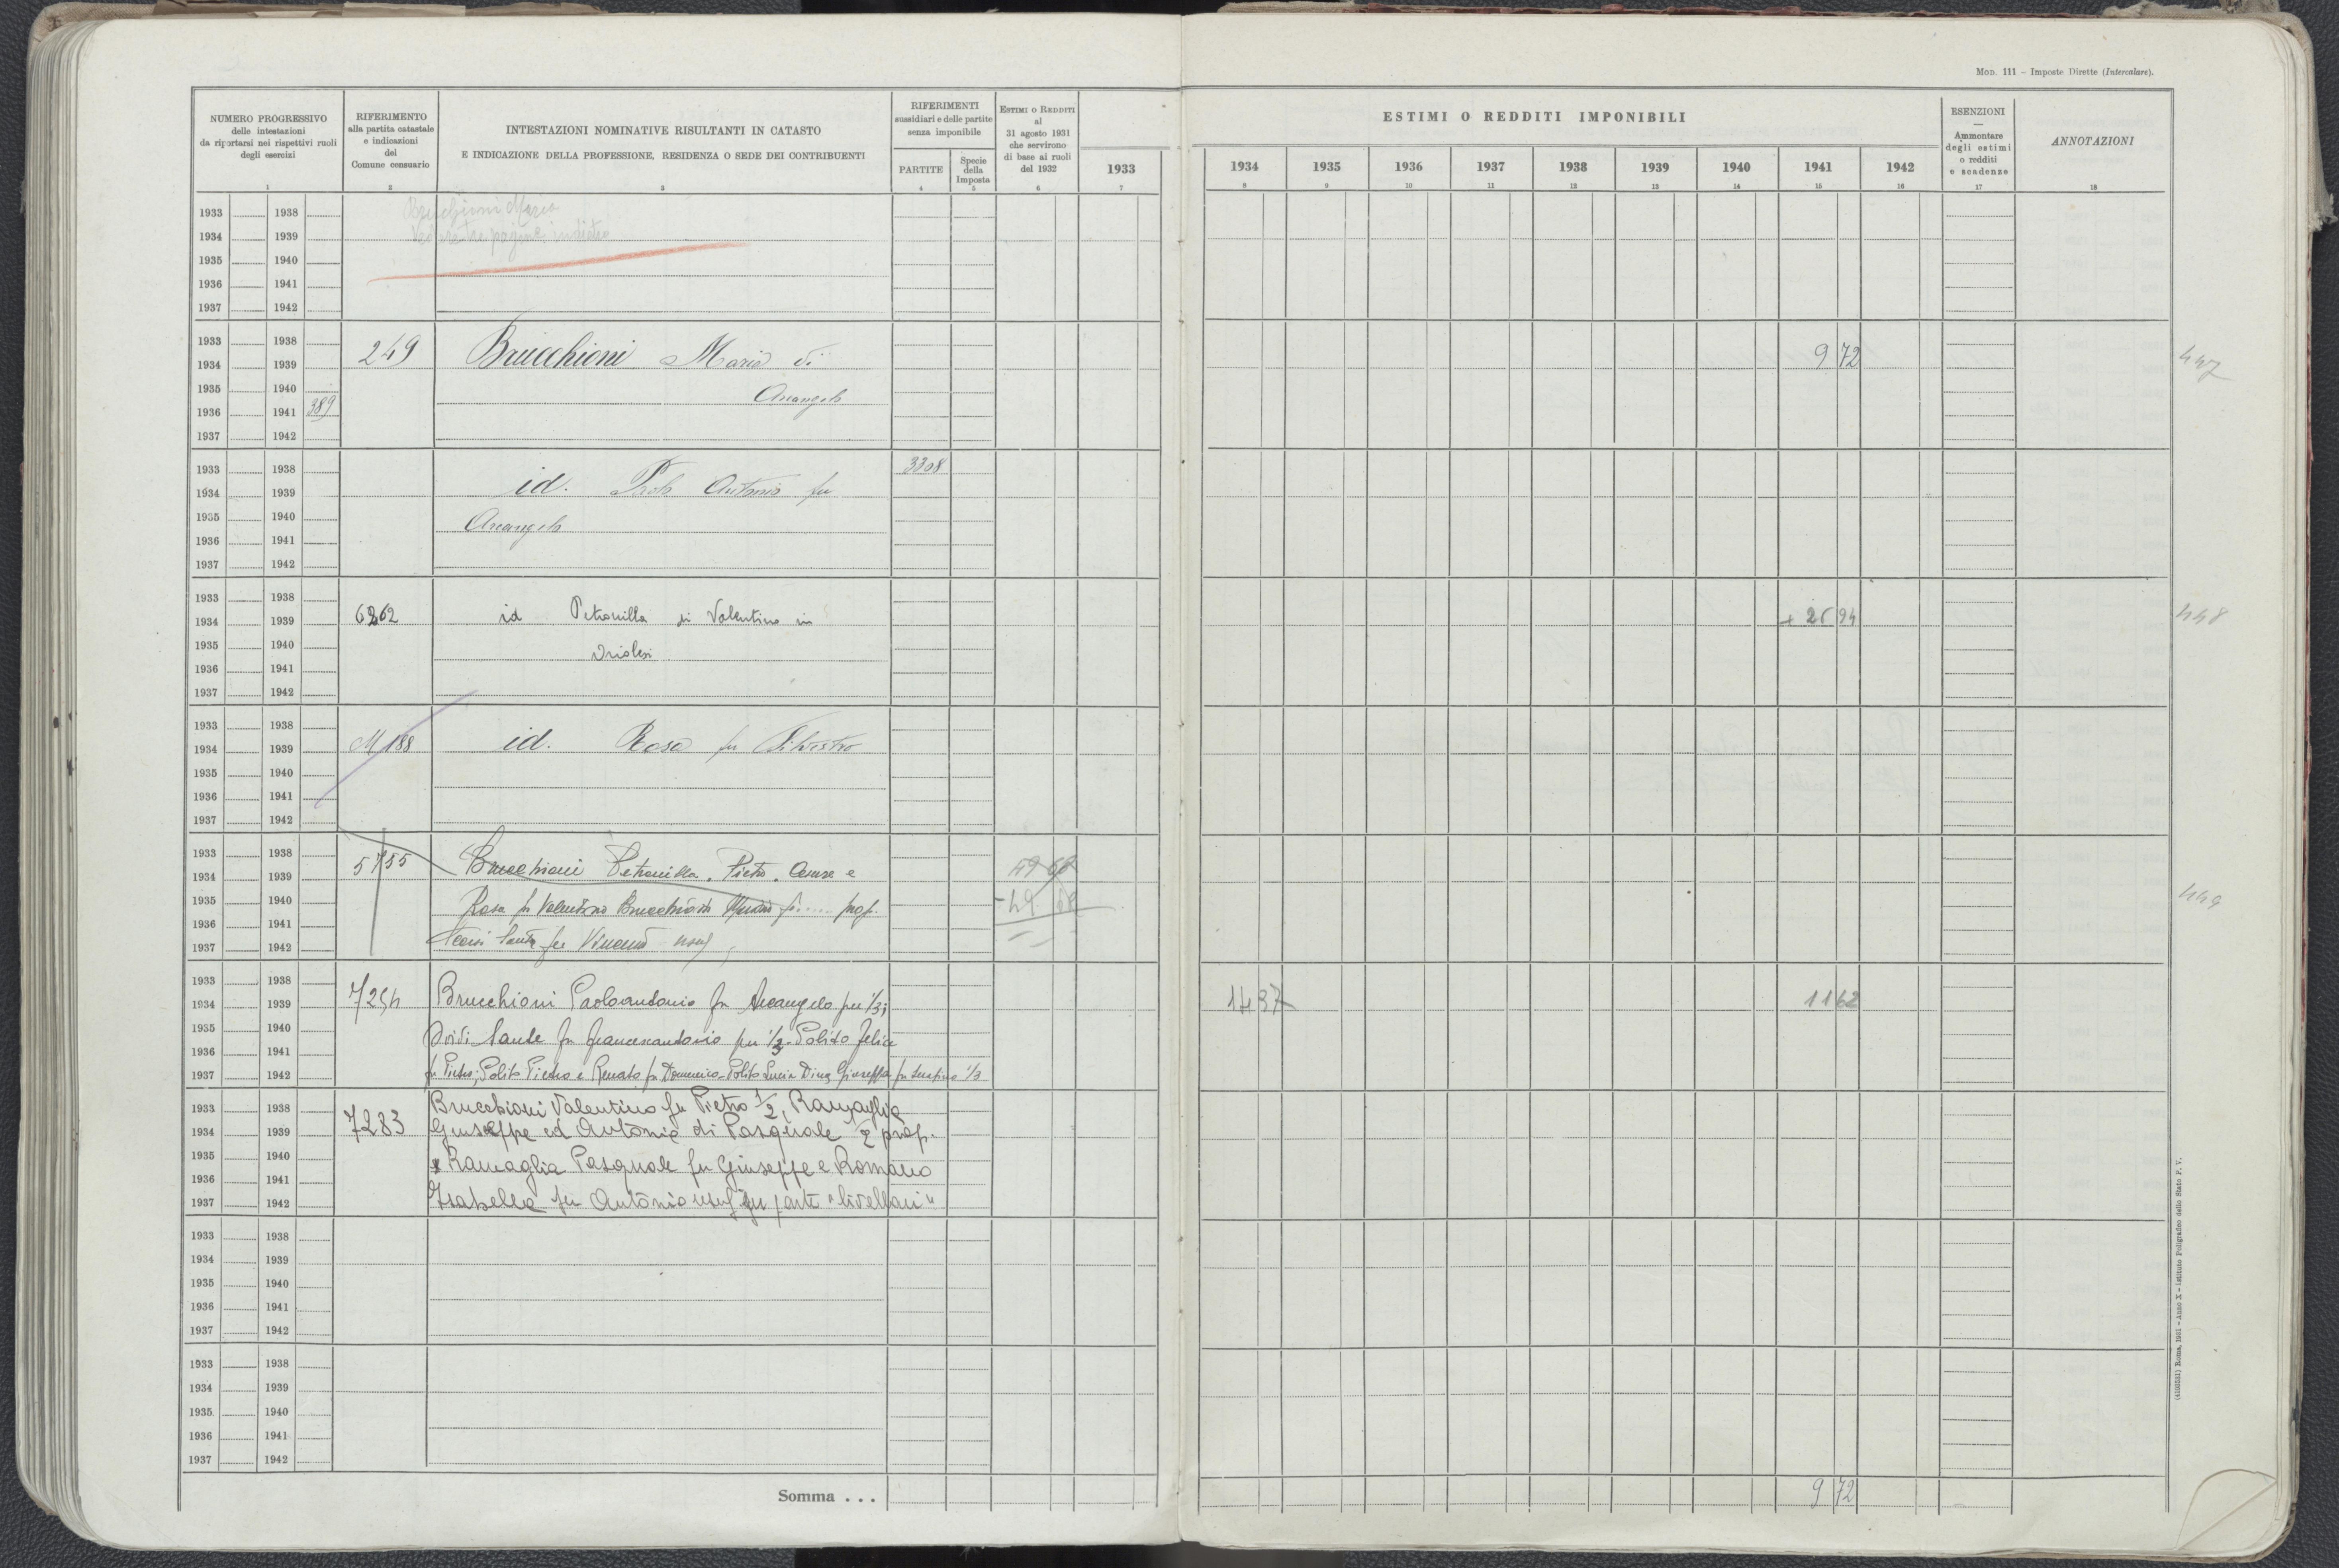 MOD. 111 – Imposte Dirette (Intercalare).
NUMERO PROGRESSIVO
delle intestazioni
da riportarsi nei rispettivi ruoli
degli esercizi
RIFERIMENTO
alla partita catastale
e indicazioni
del
Comune censuario
INTESTAZIONI NOMINATIVE RISULTANTI IN CATASTO
E INDICAZIONE DELLA PROFESSIONE, RESIDENZA O SEDE DEI CONTRIBUENTI
RIFERIMENTI
sussidiari e delle partite
senza imponibile
PARTITE
Specie
della
Imposta
ESTIMI O REDDITI
al
31 agosto 1931
che servirono
di base ai ruoli
del 1932
1933
ESTIMI O REDDITI IMPONIBILI
1934 1935 1936 1937 1938 1939 1940 1941 1942
ESENZIONI
—
Ammontare
degli estimi
o redditi
e scadenze
ANNOTAZIONI
1 2 3 4 5 6 7 8 9 10 11 12 13 14 15 16 17 18
1933 1938 Brucchioni Maria
1934 1939
1935 1940
1936 1941
1937 1942
1933 1938
1934 1939 249 Brucchioni Maria di 9 72 447
1935 1940 Arcangelo
1936 1941 389
1937 1942
1933 1938 3308
1934 1939 id. Paolo Antonio fu
1935 1940 Arcangelo
1936 1941
1937 1942
1933 1938
1934 1939 6262 id Petronilla di Valentino in + 26 94 448
1935 1940 Iriolesi
1936 1941
1937 1942
1933 1938
1934 1939 M188 id. Rosa fu Silvestro
1935 1940
1936 1941
1937 1942
1933 1938
1934 1939 5755 Brucchioni Petronilla, Pietro, Cesare e 49 68
1935 1940 Rosa fu Valentino Brucchioni fu .... prop. - 49 68 449
1936 1941
1937 1942 Santa fu Vincenzo usuf
1933 1938
1934 1939 7254 Brucchioni Paoloantonio fu Arcangelo per 1/3; 14 37 11 62
1935 1940 Doidi Sante fu Francescantonio per 1/3 - Polito Felice
1936 1941
1937 1942 fu Pietro; Polito Pietro e Renato fu Domenico - Polito Lucia Dina Giuseppa fu 1/3
1933 1938 Brucchioni Valentino fu Pietro 1/2, Ramaglia
1934 1939 7283 Giuseppe ed Antonio di Pasquale 1/2 prop.
1935 1940 e Ramaglia Pasquale fu Giuseppe e Romano
1936 1941
1937 1942 Isabella fu Antonio usuf per parte "livellari"
1933 1938
1934 1939
1935 1940
1936 1941
1937 1942
1933 1938
1934 1939
1935 1940
1936 1941
1937 1942
Somma . . . 9 72
(4103531) Roma, 1931 – Anno X – Istituto Poligrafico dello Stato P. V.